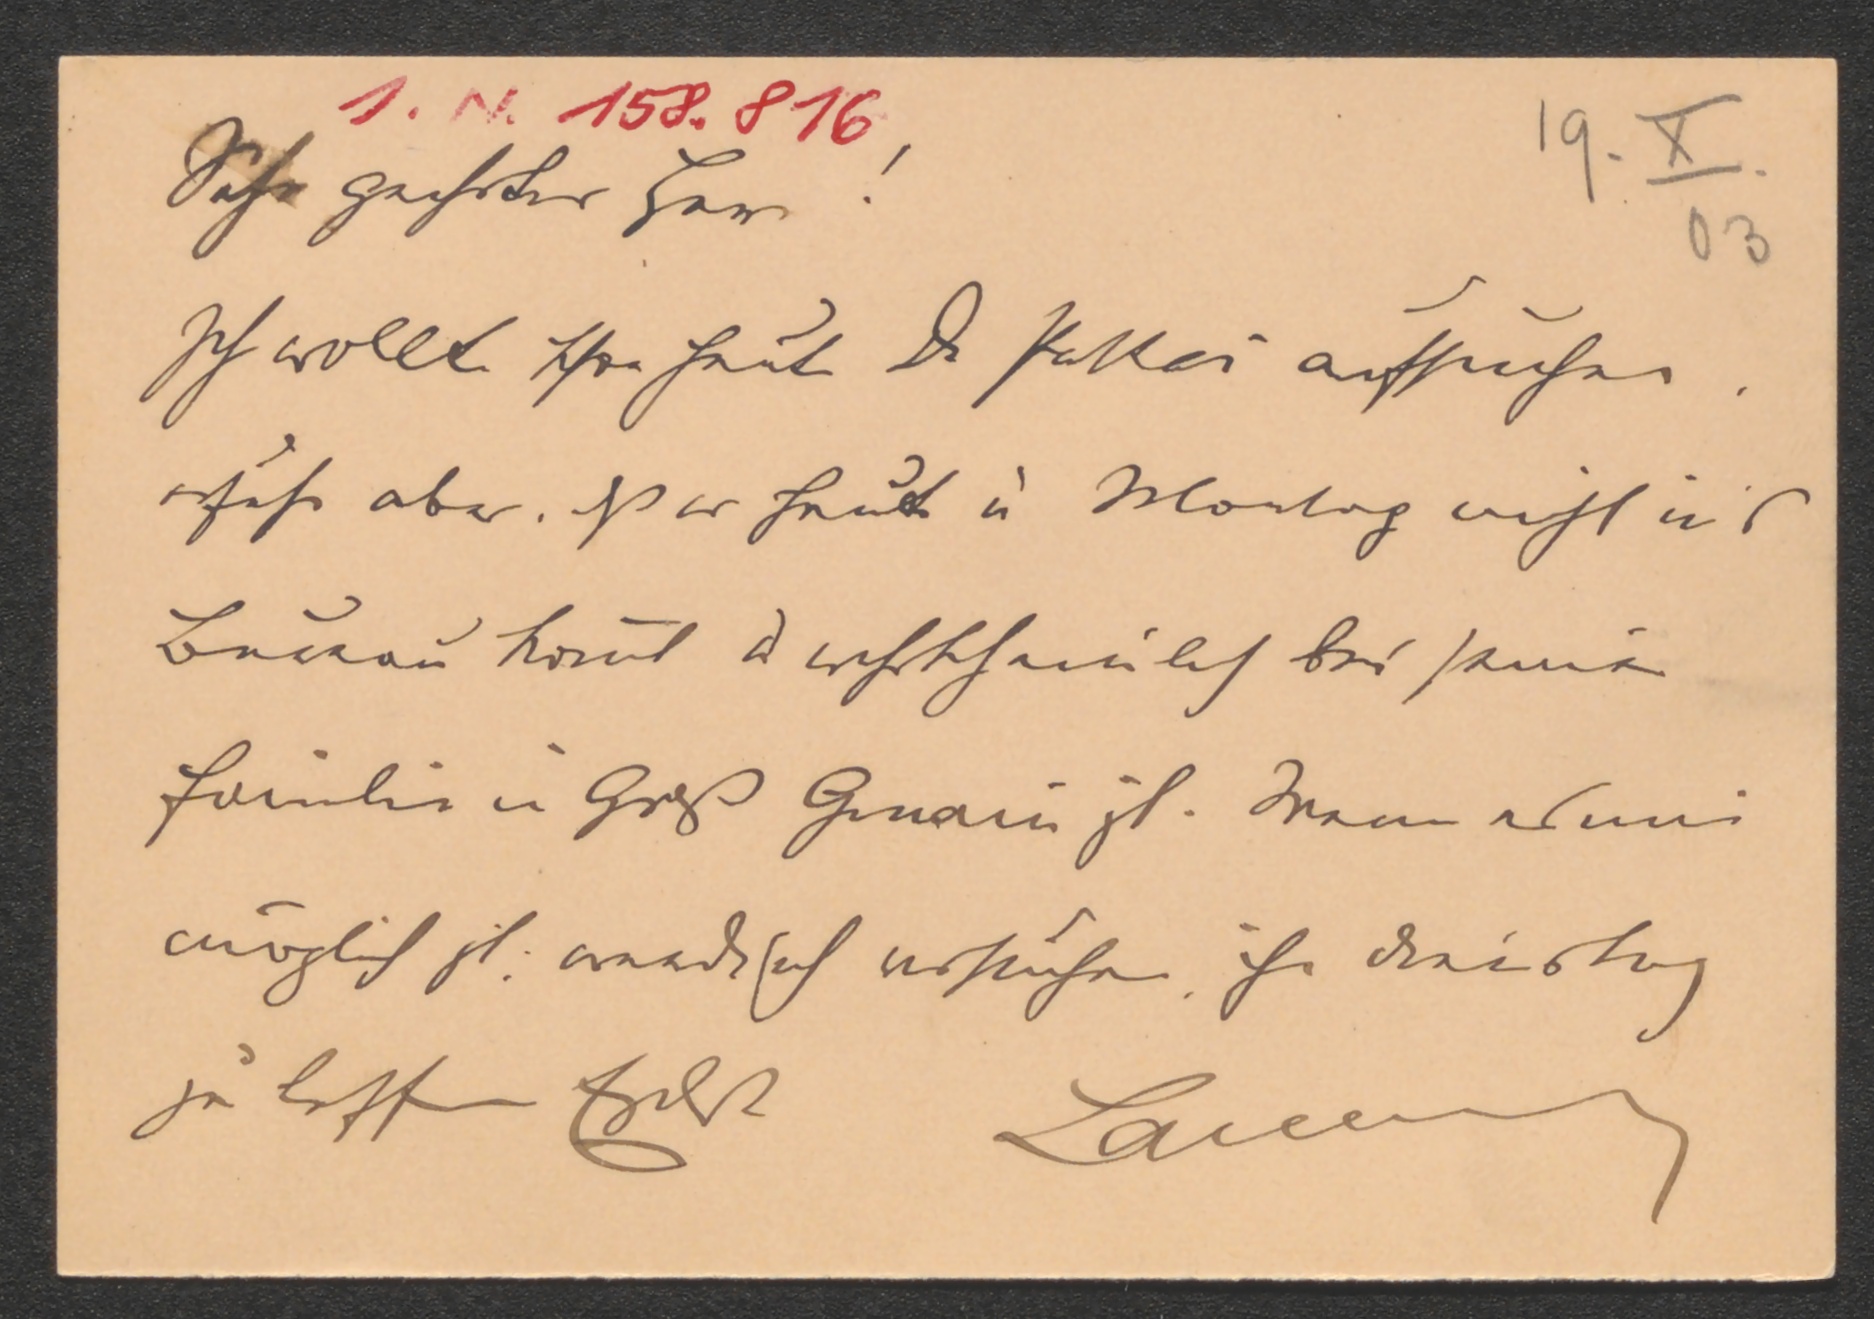 I. N. 158.816
19. X.
03
Sehr geehrter Herr!
Ich wollte schon heute Dr Pattai aufsuchen,
erfuhr aber, daß er heute u Montag nicht ins
Bureau kommt u wahrscheinlich bei seiner
Familie in Groß Gmain ist. Wenn es mir
möglich ist, werde ich versuchen, ihn Dienstag
zu treffen